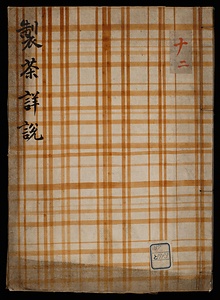 製茶詳説
十二